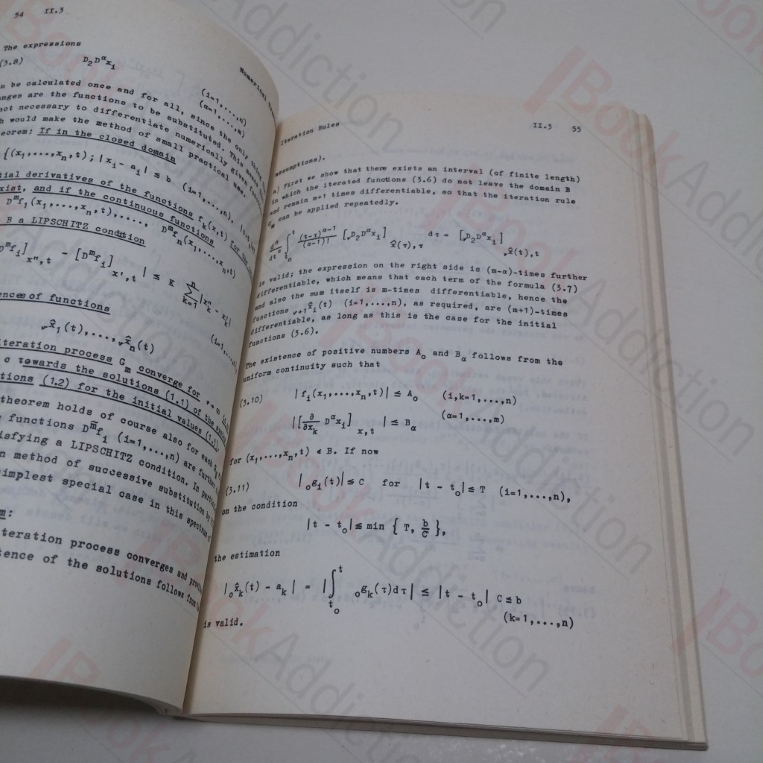 54 II.3
The expressions
(3.8) D₂Dᵅxᵢ (i=1,...,n)
(α=1,...,m)
be calculated once and for all, since the only
are the functions to be substituted. This
not necessary to differentiate numerically
would make the method of small practical use.
If in the closed domain
{(x₁,...,xₙ,t); |xᵢ - aᵢ| ≤ b (i=1,...,n),
derivatives of the functions fₖ(x,t)
exist, and if the continuous functions
Dᵐf₁(x₁,...,xₙ,t),....., Dᵐfₙ(x₁,...,xₙ,t)
B a LIPSCHITZ condition
[Dᵐfᵢ]x″,t - [Dᵐfᵢ]x′,t | ≤ K Σₖ₌₁ⁿ |x″ₖ - x′ₖ|
of functions
ᵥx̂₁(t),...,ᵥx̂ₙ(t) (i=1,...,n)
iteration process Gₘ converge for
towards the solutions (1.1) of the
(1.2) for the initial values
theorem holds of course also for each
functions Dᵐfᵢ (i=1,...,n) are
a LIPSCHITZ condition. In
method of successive substitution
simplest special case in this spectrum
iteration process converges and
of the solutions follows from
Iteration Rules II.3 55
assumptions).
a) First we show that there exists an interval (of finite length)
in which the iterated functions (3.6) do not leave the domain B
and remain m+1 times differentiable, so that the iteration rule
Gₘ can be applied repeatedly.
dᵅ/dtᵅ ∫ₜ₀ᵗ (t-τ)ᵅ⁻¹/(α-1)! [ᵥD₂Dᵅxᵢ]ᵥx̂(τ),τ dτ = [ᵥD₂Dᵅxᵢ]ᵥx̂(t),t
is valid; the expression on the right side is (m-α)-times further
differentiable, which means that each term of the formula (3.7)
and also the sum itself is m-times differentiable, hence the
functions ᵥ₊₁x̂ᵢ(t) (i=1,...,n), as required, are (m+1)-times
differentiable, as long as this is the case for the initial
functions (3.6).
The existence of positive numbers A₀ and Bα follows from the
uniform continuity such that
(3.10) |fᵢ(x₁,...,xₙ,t)| ≤ A₀ (i,k=1,...,n)
|[∂/∂xₖ Dᵅxᵢ]x,t| ≤ Bα (α=1,...,m)
for (x₁,...,xₙ,t) ϵ B. If now
(3.11) |₀gᵢ(t)| ≤ C for |t - t₀| ≤ T (i=1,...,n),
on the condition
|t - t₀| ≤ min {T, b/C},
the estimation
|₀x̂ₖ(t) - aₖ| = |∫ₜ₀ᵗ ₀gₖ(τ)dτ| ≤ |t - t₀| C ≤ b
(k=1,...,n)
is valid.
Book Addiction